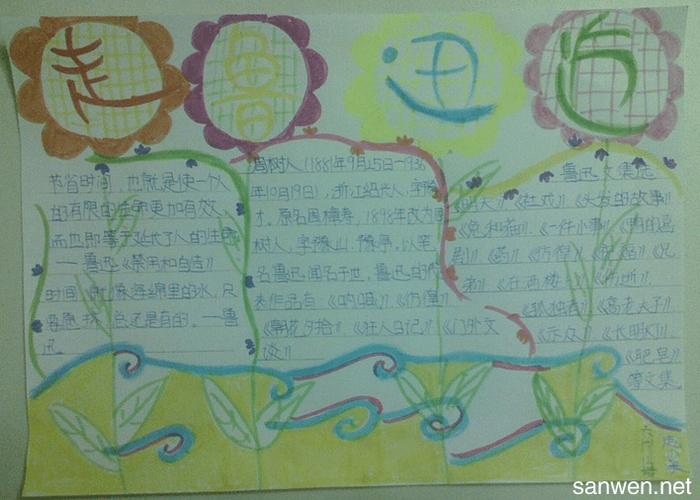 走 鲁 迅 近
节省时间，也就是使一个人
的有限的生命更加有效，
而也即等于延长了人的生命
——鲁迅《禁用和自造》
时间就像海绵里的水，只
要愿挤，总还是有的。——鲁
迅
周树人（1881年9月25日—1936
年10月19日），浙江绍兴人，字豫
才，原名周樟寿，1898年改为周
树人，字豫山、豫亭，以笔
名鲁迅闻名于世，鲁迅的代
表作品有：《呐喊》、《彷徨》
《朝花夕拾》《狂人日记》《门外文
谈》
鲁迅文集选
《明天》《社戏》《头发的故事》
《兔和猫》《一件小事》《鸭的喜
剧》《药》《彷徨》《祝福》《兄
弟》《在酒楼上》《伤逝》
《孤独者》《高老夫子》
《示众》《长明灯》
《肥皂》
等文集
sanwen.net